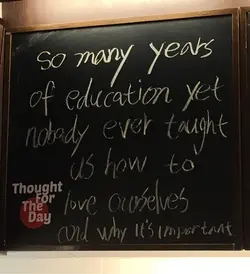 so many years
of education yet
nobody ever taught
us how to
love ourselves
and why it's important
Thought
For
The
Day